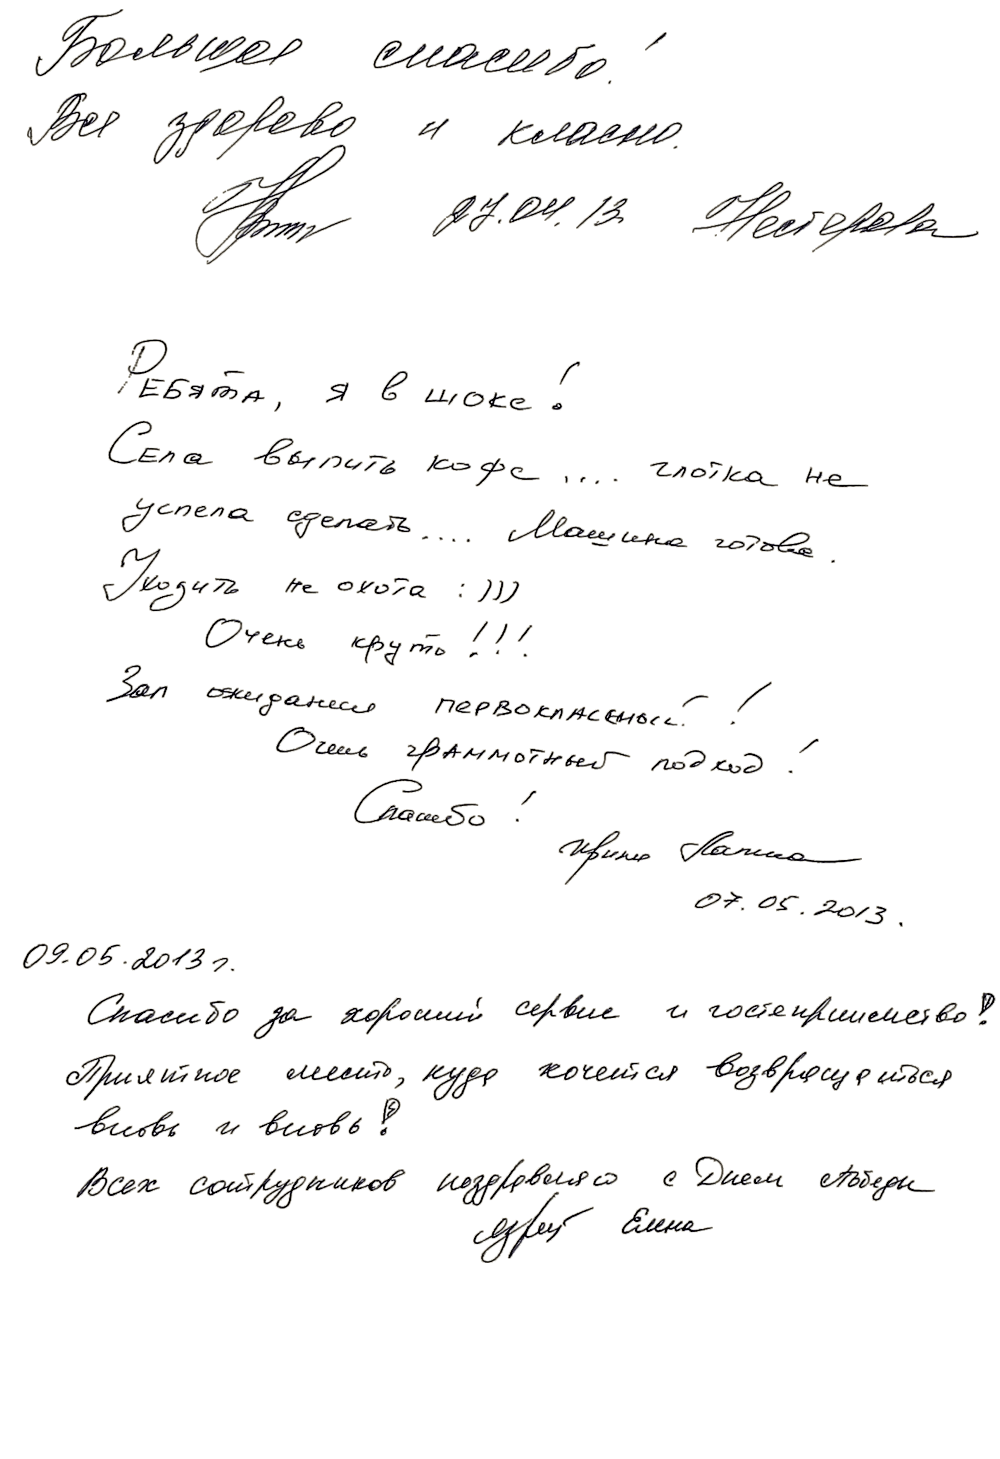 Большое спасибо!
Все здорово и класно.
27.04.13. Нестерова
Ребята, я в шоке!
Села выпить кофе .... глотка не
успела сделать .... Машина готова.
Уходить не охота :)))
Очень круто!!!
Зал ожидания первокласный!
Очень грамотный подход!
Спасибо!
Ирина
07.05.2013.
09.05.2013 г.
Спасибо за хороший сервис и гостеприимство!
Приятное место, куда хочется возвращаться
вновь и вновь!
Всех сотрудников поздравляю с Днем Победы
Елена